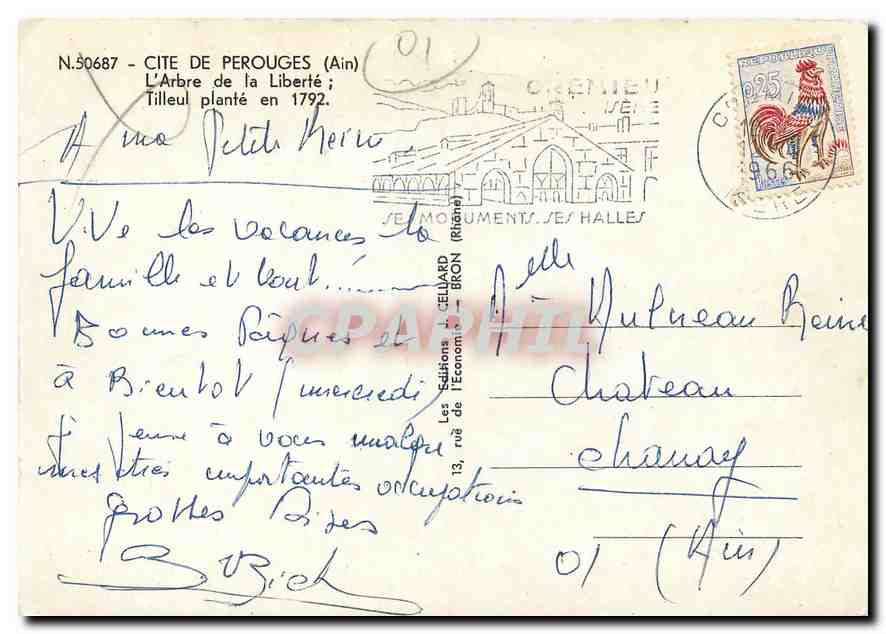 N.50687 - CITE DE PEROUGES (Ain)
L'Arbre de la Liberté ;
Tilleul planté en 1792.
01
CREMIEU
ISÈRE
SES MONUMENTS. SES HALLES
REPUBLIQUE
0,25
966
ISERE
A ma Petite Reine
Vive les vacances la
famille et tout......
Bonnes Pâques et
à Bientot (mercredi)
je pense à vous malgré
mes très importantes occupations
grosses Bises
Les Editions J. CELLARD
13, rue de l'Economie - BRON (Rhône)
CPAPHIL
Melle
Reine
Chateau
Chanay
01 (Ain)